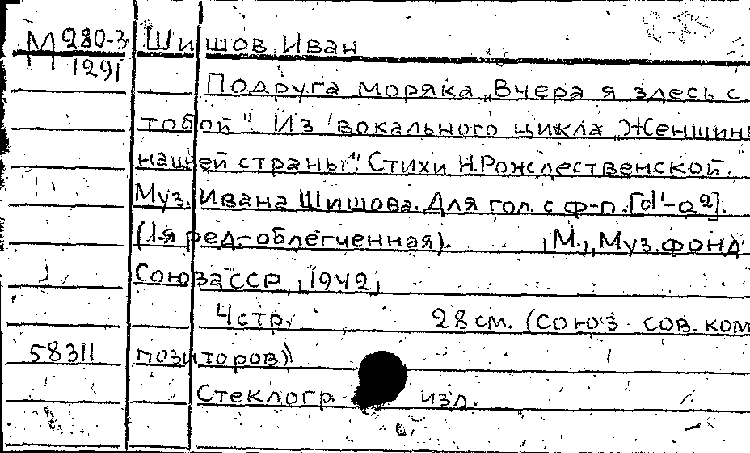 М 280-3 Шишов, Иван
1291
Подруга моряка „Вчера я здесь с
тобой". Из вокального цикла „Женщины
нашей страны". Стихи Н.Рождественской.
Муз. Ивана Шишова. Для гол. с ф-п. [d¹-a²].
(1-я ред.-облегченная). М., Муз.фонд
Союза ССР, 1942,
4 стр. 28 см. (Союз сов. ком
58311 позиторов)
Стеклогр. изд.